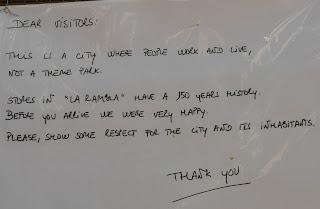 DEAR VISITORS:
THIS IS A CITY WHERE PEOPLE WORK AND LIVE,
NOT A THEME PARK.
STORES IN "LA RAMBLA" HAVE A 150 YEARS HISTORY.
BEFORE YOU ARRIVE WE WERE VERY HAPPY.
PLEASE, SHOW SOME RESPECT FOR THE CITY AND ITS INHABITANTS.
THANK YOU